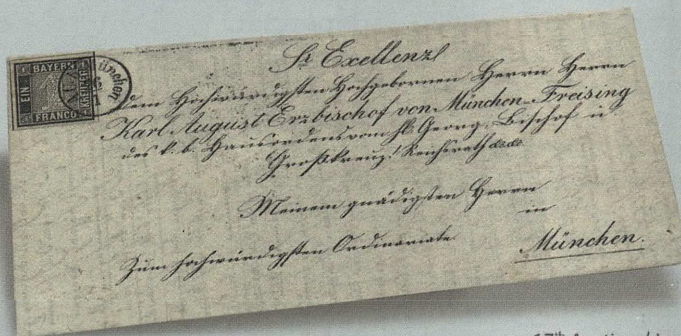 BAYERN
EIN
KREUZER
FRANCO
München
Sr Exellenz!
dem Hochwürdigsten Hochgebornen Herrn Herrn
Karl August Erzbischof von München-Freising
des k. b. Hausordens vom hl. Georg, Bischof u
Großkreuz! Reichsrath
Meinem gnädigsten Herrn
in
Zum hochwürdigsten Ordinariate.
München.